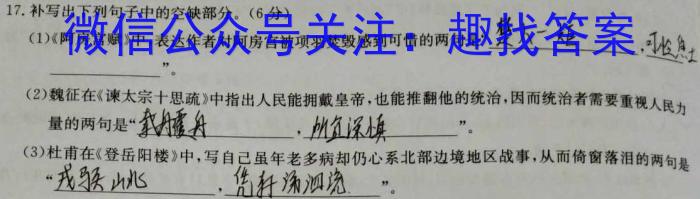 17.补写出下列句子中的空缺部分。(6分)
微信公众号关注：趣找答案
(1)《阿房宫赋》中,表达作者对阿房宫被项羽焚毁感到可惜的两句是“楚人一炬,可怜焦土
”。
(2)魏征在《谏太宗十思疏》中指出人民能拥戴皇帝,也能推翻他的统治,因而统治者需要重视人民力
量的两句是“载舟覆舟,所宜深慎”。
(3)杜甫在《登岳阳楼》中,写自己虽年老多病却仍心系北部边境地区战事,从而倚窗落泪的两句是
“戎马关山北,凭轩涕泗流”。